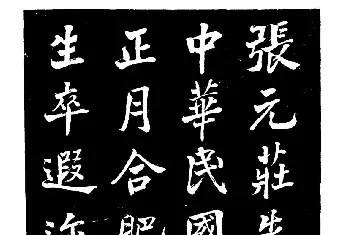 張元莊
中華民國
正月合肥
生卒遐